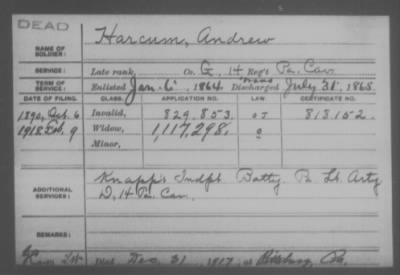 DEAD
NAME OF SOLDIER: Harcum, Andrew
SERVICE: Late rank, Co. G, 14 Reg't Pa. Cav.
TERM OF SERVICE: Enlisted Jan. 6, 1864 Discharged July 31, 1865
DATE OF FILING. CLASS. APPLICATION NO. LAW CERTIFICATE NO.
1890, Oct. 6 Invalid, 829,853. 813,152.
1918 9 Widow, 1,117,298.
Minor,
ADDITIONAL SERVICES: Knapp's Indpt. Batty. Pa. Lt. Arty
D, 14 Pa. Cav.
REMARKS:
Died Dec. 31, 1917, at Pa.